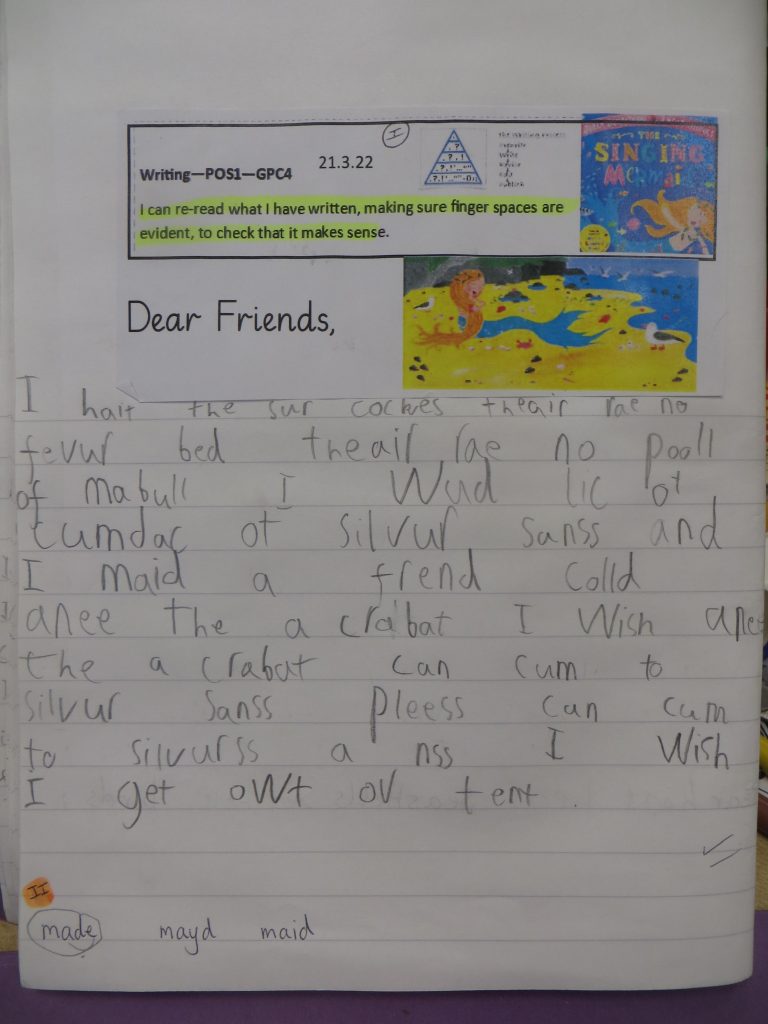 I
Writing—POS1—GPC4
21.3.22
I can re-read what I have written, making sure finger spaces are
evident, to check that it makes sense.
THE
SINGING
MERMAID
Dear Friends,
I hait the sur cockes theair rae no
fevur bed theair rae no pooll
of mabull I Wud lic ot
cumdac ot silvur sanss and
I maid a frend colld
anee the a crabat I Wish anee
the a crabat can cum to
silvur sanss pleess can cum
to silvurss a nss I Wish
I get owt ov tent.
II
made mayd maid